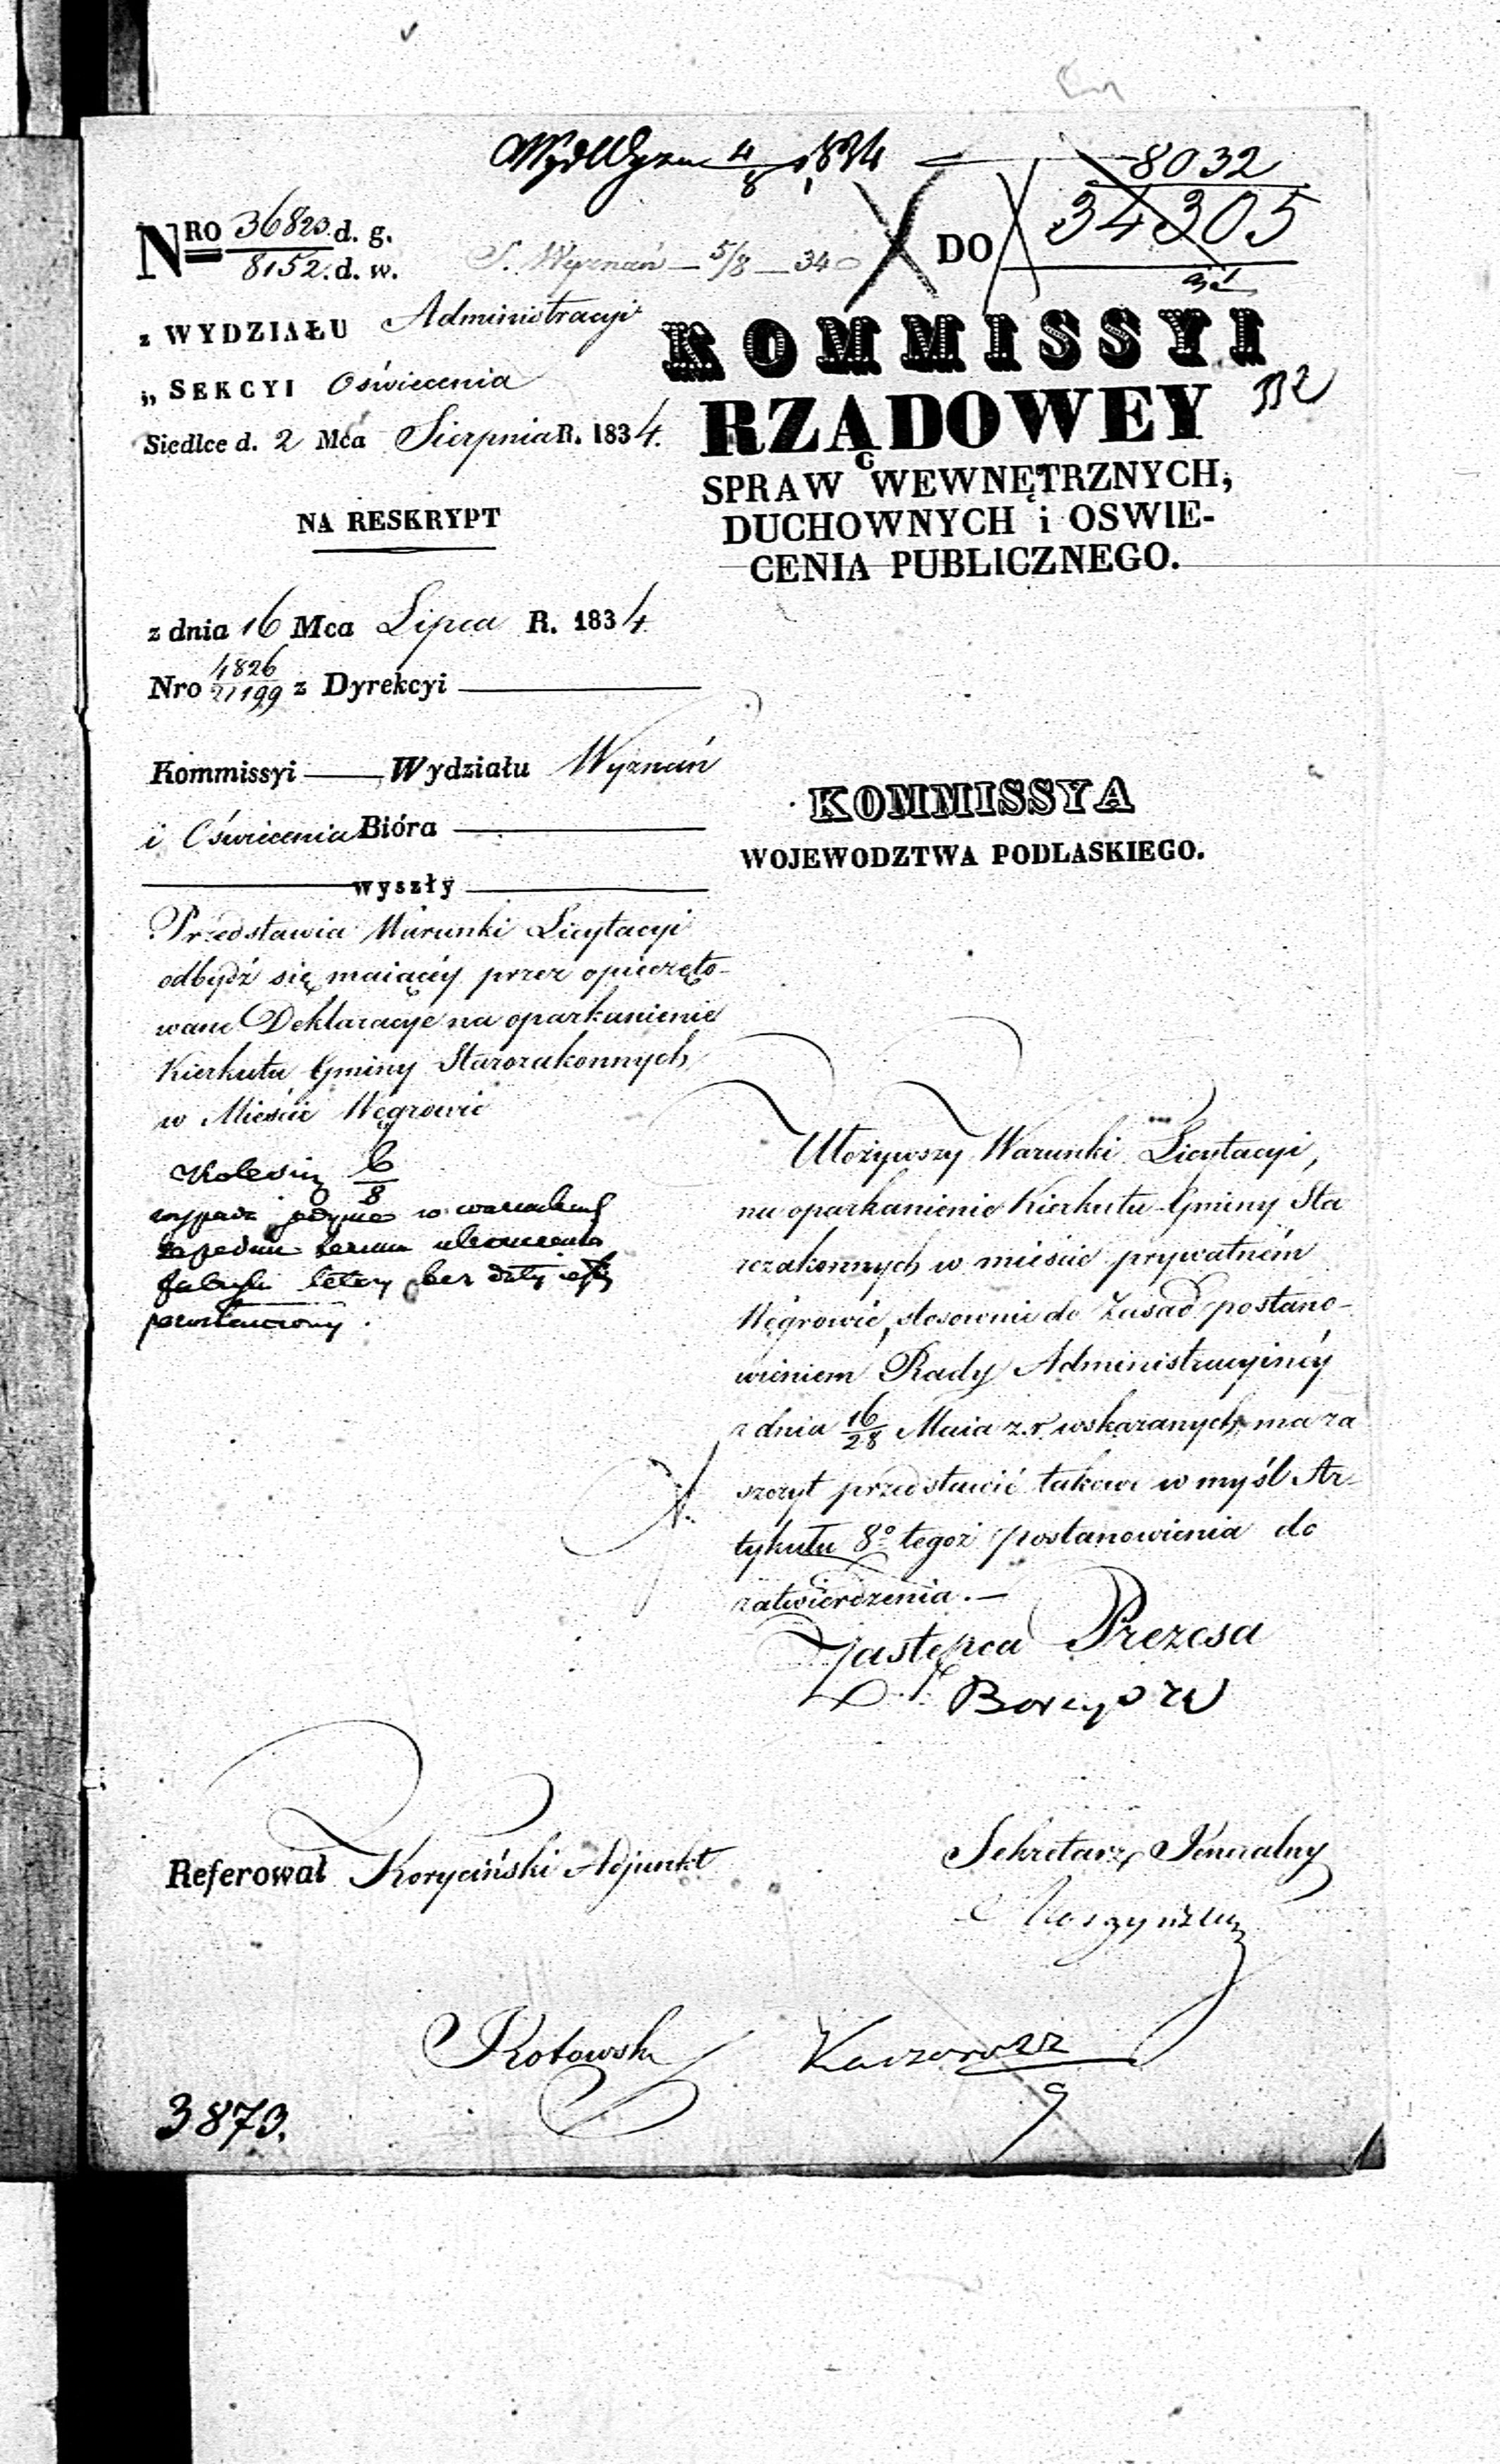 4/8 1834
8032
34305
NRO 36823. d. g.
8152. d. w.
S. Wyznań — 5/8 — 34
DO
z WYDZIAŁU Administracyi
„ SEKCYI Oświecenia
Siedlce d. 2 Mca Sierpnia R. 1834.
KOMMISSYI
RZĄDOWEY
SPRAW WEWNĘTRZNYCH,
DUCHOWNYCH i OSWIE-
CENIA PUBLICZNEGO.
NA RESKRYPT
z dnia 16 Mca Lipca R. 1834.
Nro 4826/21199 z Dyrekcyi
Kommissyi Wydziału Wyznań
i Oświecenia Bióra
wyszły
KOMMISSYA
WOJEWODZTWA PODLASKIEGO.
Przedstawia Warunki Licytacyi
odbydź się maiącéy przez opieczęto-
wane Deklaracye na oparkanienie
Kierkutu Gminy Starozakonnych
w Mieście Węgrowie
6/8
Ułożywszy Warunki Licytacyi,
na oparkanienie Kierkutu Gminy Sta
rozakonnych w mieście prywatném
Węgrowie, stosownie do Zasad postano-
wieniem Rady Administracyinéy
z dnia 16/28 Maia z.r. wskazanych, ma za
szczyt przedstawić takowe w myśl Ar-
tykułu 8º tegoż postanowienia do
zatwierdzenia. —
Zastępca Prezesa
Referował Koryciński Adjunkt
Sekretarz Jeneralny
Kotowski
3873.